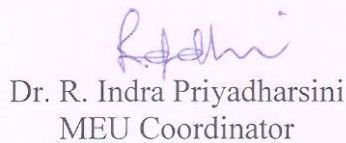 Dr. R. Indra Priyadharsini
MEU Coordinator